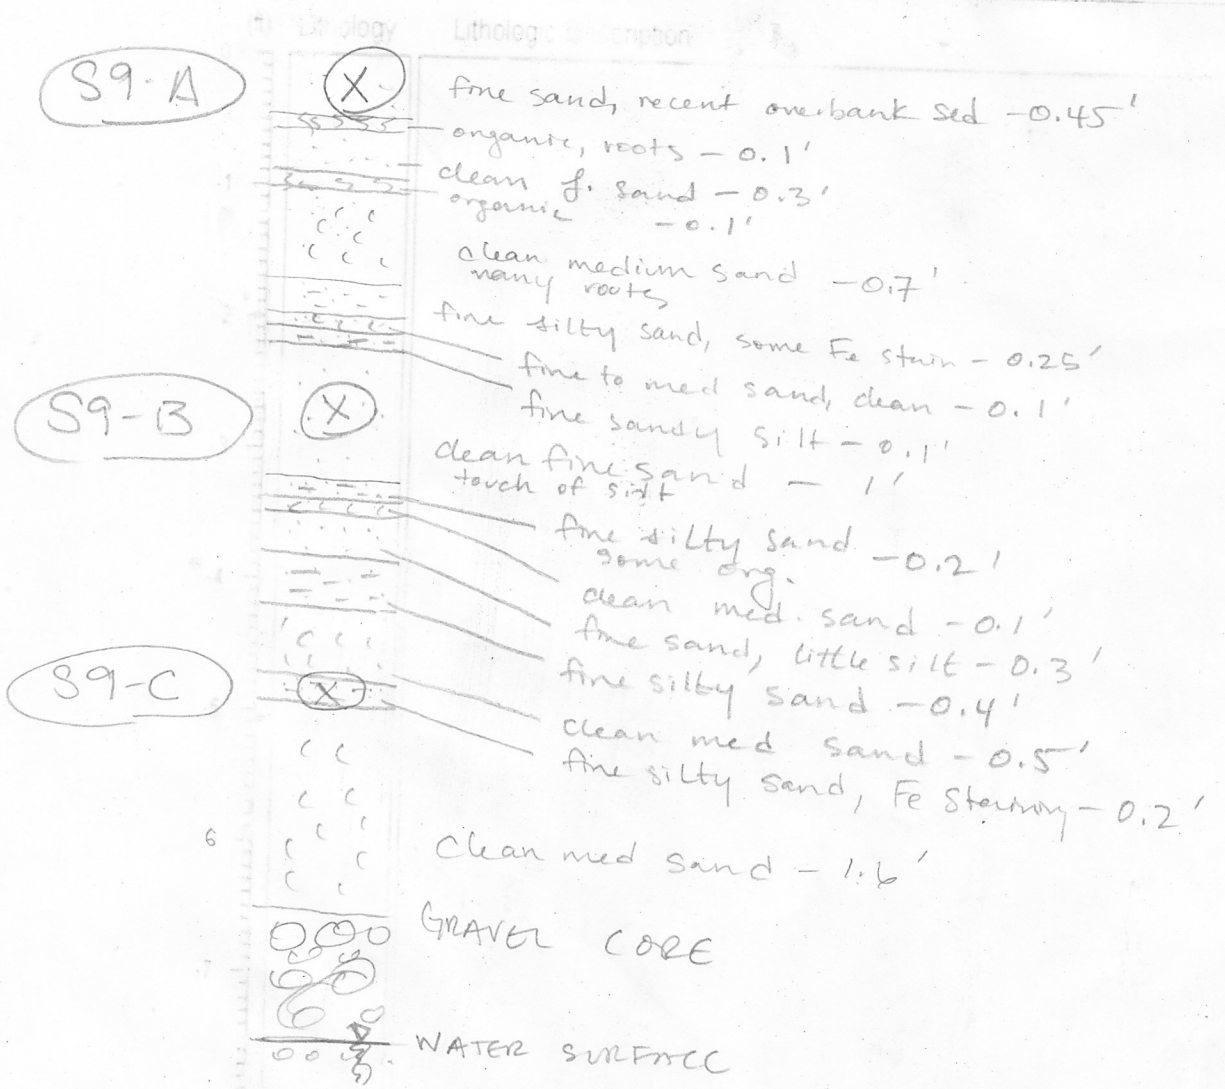 (ft) Lithology Lithologic Description
S9-A X fine sand, recent overbank sed -0.45'
organic, roots - 0.1'
clean f. sand - 0.3'
1
organic -0.1'
clean medium sand -0.7'
many roots
fine silty sand, some Fe stain - 0.25'
2
fine to med sand, clean - 0.1'
fine sandy silt - 0.1'
S9-B X
clean fine sand - 1'
touch of silt
fine silty sand -0.2'
some org.
clean med. sand -0.1'
4
fine sand, little silt - 0.3'
fine silty sand -0.4'
S9-C X
clean med sand - 0.5'
fine silty sand, Fe Staining - 0.2'
6
clean med sand - 1.6'
GRAVEL CORE
7
WATER SURFACE